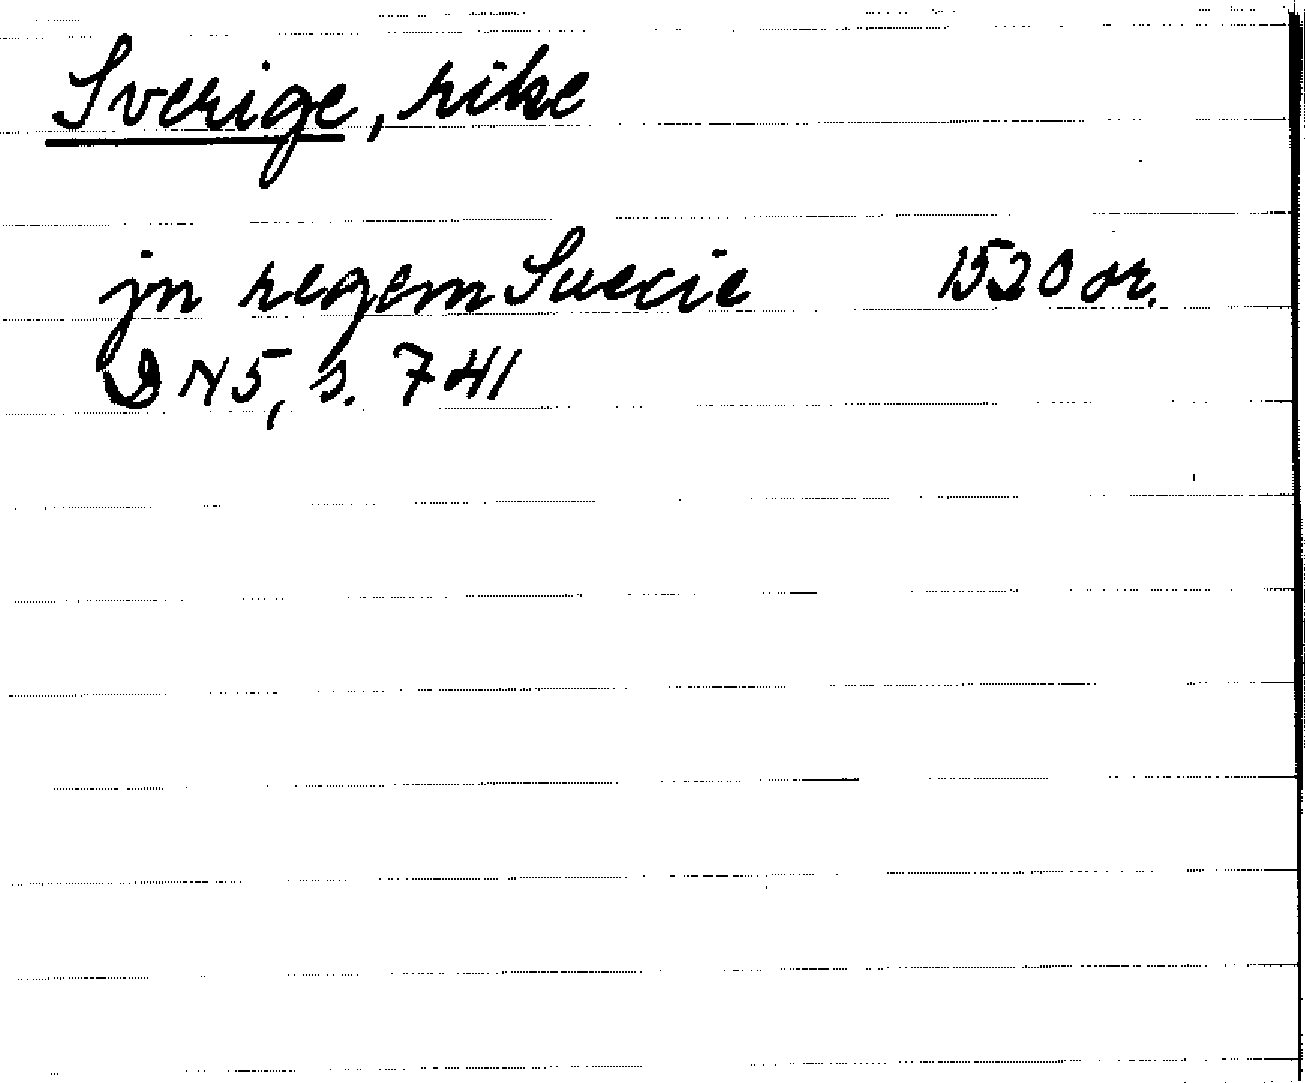 Sverige, rike
jn regem Suecie 1520 or.
DN 5, s. 741